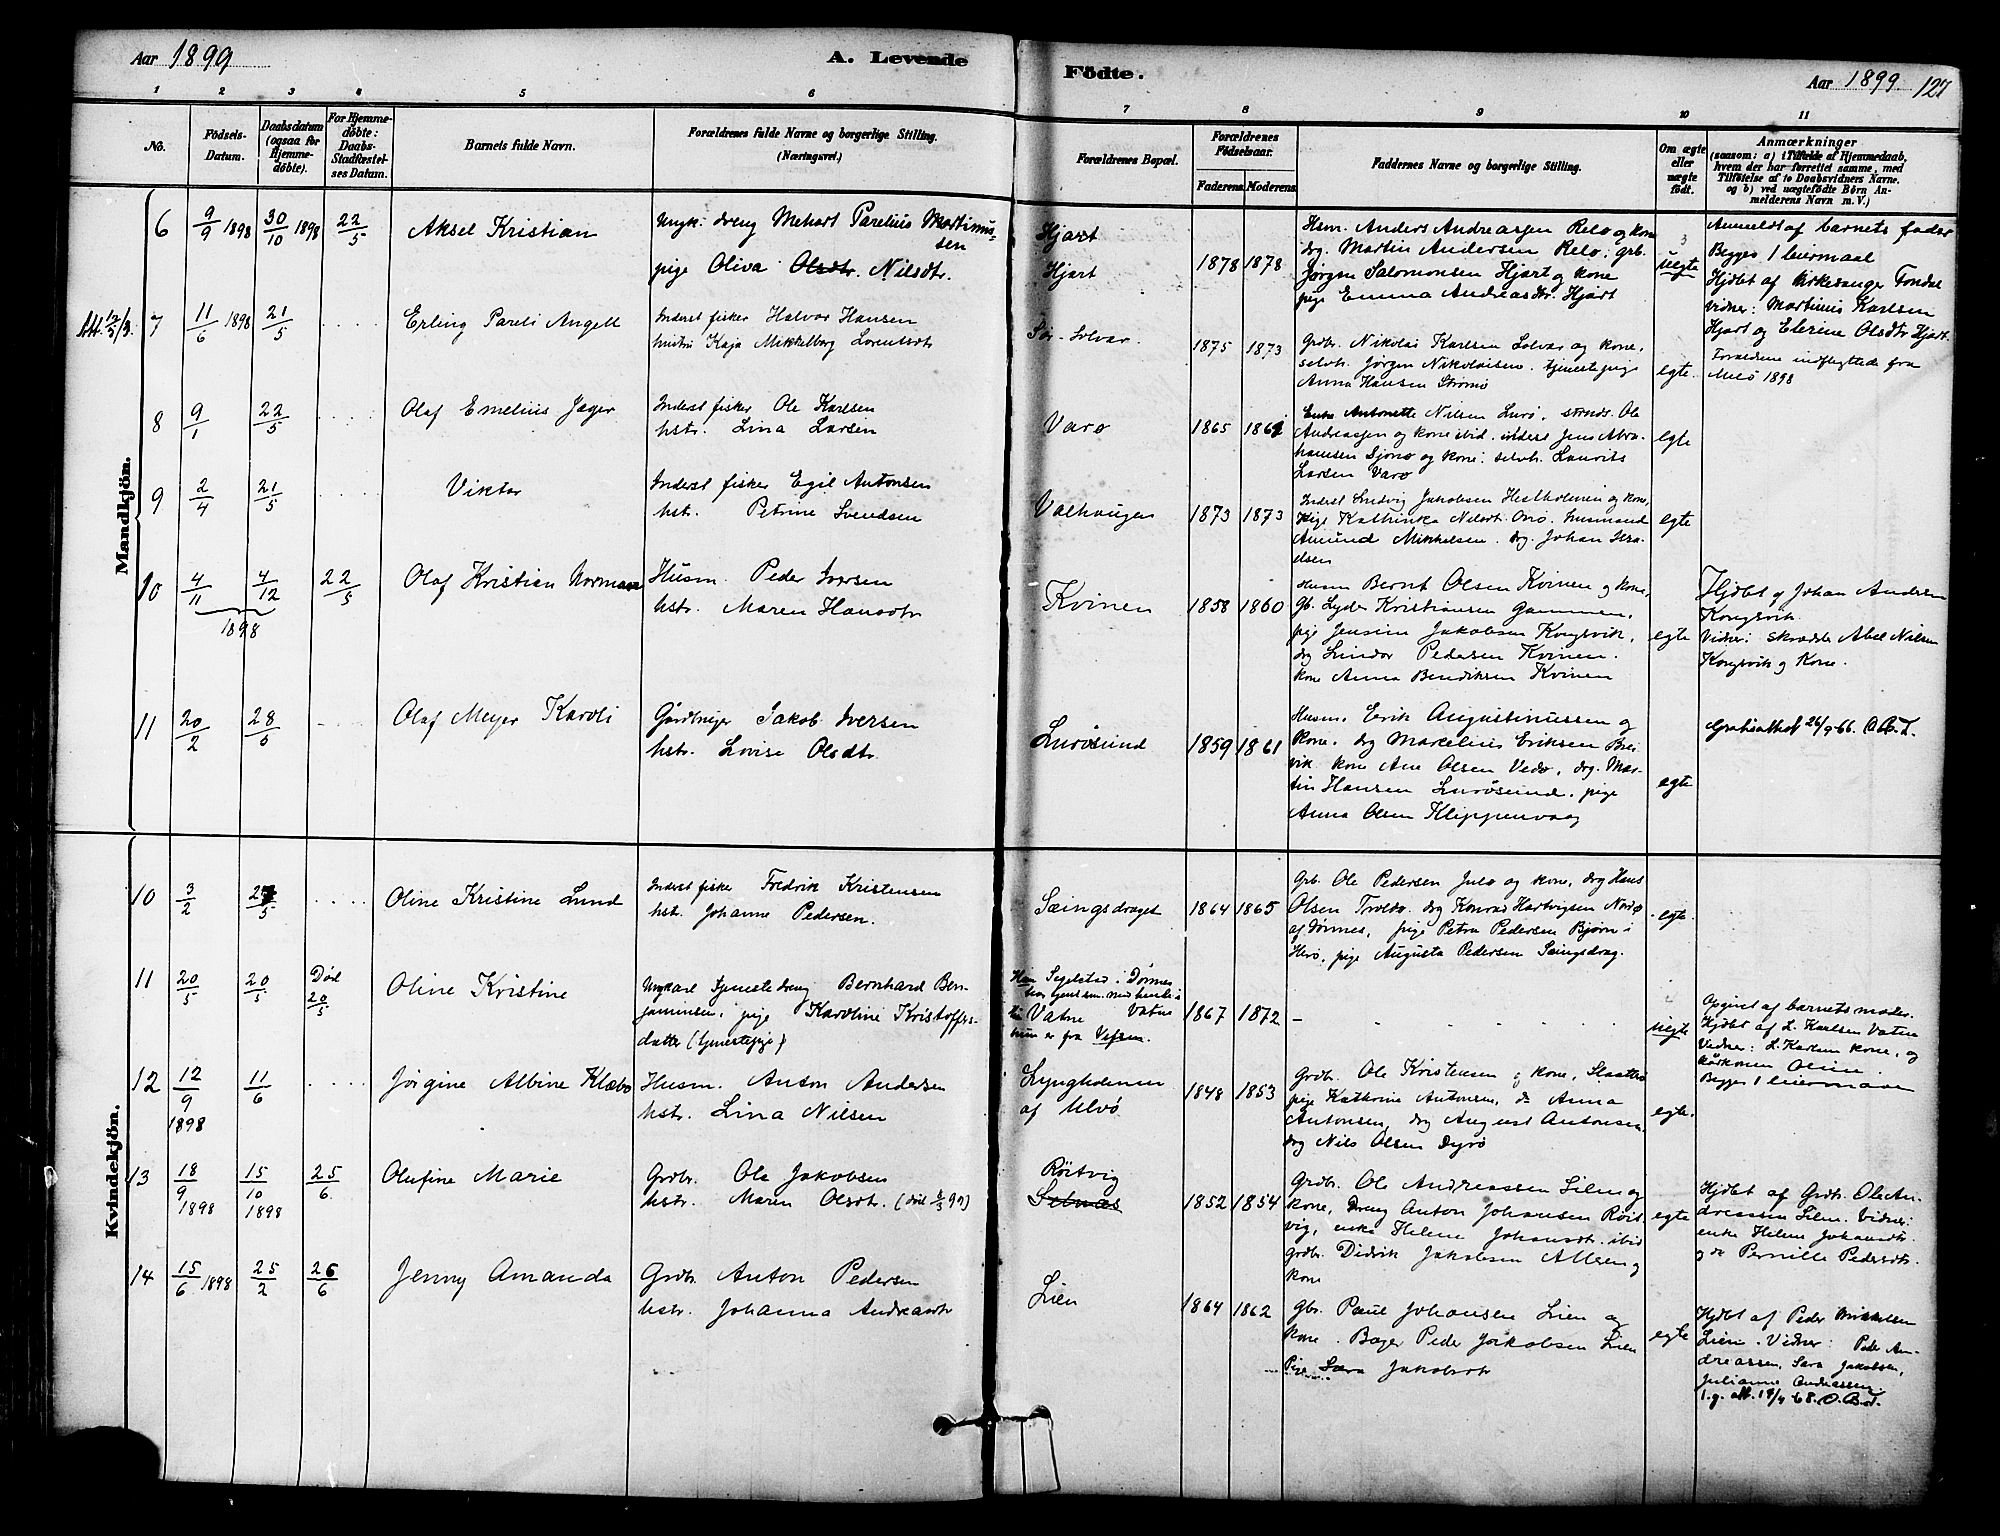 Aar 1899
A. Levende
Födte.
Aar 1899
127
1 2 3 4 5 6 7 8 9 10 11
No.
Födsels-
Datum.
Daabsdatum
(ogsaa for
Hjemme-
døbte).
For Hjemme-
døbte:
Daabs-
Stadfæstel-
ses Datum.
Barnets fulde Navn.
Forældrenes fulde Navne og borgerlige Stilling.
(Næringsvei.)
Forældrenes Bopæl.
Forældrenes
Födselsaar.
Faderens. Moderens.
Faddernes Navne og borgerlige Stilling.
Om ægte
eller
uægte
født.
Anmærkninger
(saasom: a) i Tilfælde af Hjemmedaab,
hvem der har forrettet samme, med
Tilføielse af to Daabsvidners Navne,
og b) ved uægtefödte Börn An-
melderens Navn m. V.)
Mandkjön.
6 9/9 1898 30/10 1898 22/5 Aksel Kristian
Ungk: dreng Methart Parelius Martinus-
sen
pige Oliva Olsdtr. Nilsdtr.
Hjart
Hjart
1878 1878
Hsm. Anders Andreassen Relø og kone
drg. Martin Andersen Relø, grb.
Jørgen Salomonsen Hjart og kone
pige Emma Andreasdtr. Hjart
uegte
Anmeldt af barnets fader
Begges 1 leiermaal
Hjdbt af Kirkesanger Fondal
Vidner: Martinus Karlsen
Hjart og Elerine Olsdtr Hjart.
7 11/6 1898 21/5 Erling Pareli Angell
Inderst fisker Halvor Hansen
hustru Kaja Mikkelborg Lorentsdtr
Sør-Solvær.
1875 1873
Grdbr. Nikolai Karlsen Solvær og kone,
selvh. Jørgen Nikolaisen. tjenestepige
Anna Hansen Strømø
egte.
Forældrene indflyttede fra
Melö 1898
8 9/1 22/5 .... Olaf Emelius Jæger
Inderst fisker Ole Karlsen
hstr. Lina Larsen
Varø
1865 1861
Enke Antonette Nilsen Lurø, strands. Ole
Andreassen og kone ibid. inderst Jens Abra-
hamsen Sjonø og kone: selvh. Laurits
Larsen Varø
egte
9 2/4 21/5 .... Viktor
Inderst fisker Egil Antonsen
hst. Petrine Svendsen
Valhaugen
1873 1873
Inderst Ludvig Jakobsen Hestholmen og kone,
Pige Kathinka Nilsdt. Onø. husmand
Amund Mikkelsen. drg. Johan Isra-
elsen
egte
10 4/11 4/12 22/5 Olaf Kristian Normann
1898
Husm. Peder Iversen
hstr. Maren Hansdtr
Kvinen
1858 1860
Husm Bernt Olsen Kvinen og kone,
Gb. Lyder Kristiansen Gammen,
pige Jensine Jakobsen Kongsvik,
drg Lindor Pedersen Kvinen.
kone Anna Bendiksen Kvinen
egte
Hjdbt af Johan Andersen
Kongsvik
Vidner: skrædder Abel Nilsen
Kongsvik og Kone.
11 20/2 28/5 .... Olaf Meyer Karoli
Gårdbruger Jakob Iversen
hstr. Lovise Olsdtr.
Lurøsund
1859 1861
Husm. Erik Augustinussen og
kone. drg Markelius Eriksen Brei-
vik kone Ane Olsen Vedø, drg. Mar-
tin Hansen Lurøsund. pige
Anna Olsen Klippenvaag
egte
Gratisattest 26/9-66.
Kvindekjön.
10 3/2 21/5 .... Oline Kristine Lund
Inderst fisker Fredrik Kristensen
hst. Johanne Pedersen.
Sæingsdraget
1864 1865
Grb. Ole Pedersen Julø og kone, drg Hans
Olsen Troldø. drg Konrad Hartvigsen Nordø
af Dønnes, pige Petra Pedersen Bjørn i
Herø, pige Augusta Pedersen Sæingsdrag.
egte.
11 20/5 20/5 Død 20/5 Oline Kristine
Ungkarl tjenestedreng Bernhard Ben-
jaminsen, pige Karoline Kristoffers-
datter (tjenestepige)
Han Segelstad i Dønnes
Vatne
hun er fra Vefsen.
1867 1872
uegte
Opgivet af barnets moder.
Hjdbt af L. Karlsen Vatne
Vidner: L. Karlsens kone, og
kårkonen Oline.
Begges 1 leiermaal
12 12/9 1898 11/6 .... Jørgine Albine Klæbo
Husm. Anton Andersen
hstr. Lina Nilsen
Lyngholmen
af Ulvø
1848 1853
Grdbr. Ole Kristensen og kone, Slaatterø
pige Kathrine Antonsen, do Anna
Antonsen, drg August Antonsen,
drg Nils Olsen Dyrø
egte.
13 18/9 1898 15/10 1898 25/6. Olufine Marie
Grdbr. Ole Jakobsen
hstr. Maren Olsdtr.
Røitvig
Selnæs
1852 1854
Grdbr. Ole Andreassen Silen og
kone, Dreng Anton Johansen Røit-
vig, enke Helene Johansdtr. ibid
grdbr. Didrik Jakobsen og
kone
egte
Hjdbt af Grdbr. Ole An-
dreassen Silen. Vidner:
enke Helene Johansdtr.
og do Pernille Pedersdtr.
14 15/6 1898 25/2 26/6 Jenny Amanda
Grdbr. Anton Pedersen
hstr. Johanna Andreasdtr
Lien
1864 1862
Gbr. Paul Johansen Lien og
kone. Bager Peder Jakobsen Lien
Pige Sara Jakobsdtr
egte
Hjdbt af Peder Mikkelsen
Lien. Vidner: Peder An-
dreassen, Sara Jakobsen,
Julianne Andreassen.
1. g. att. 19/4-68.